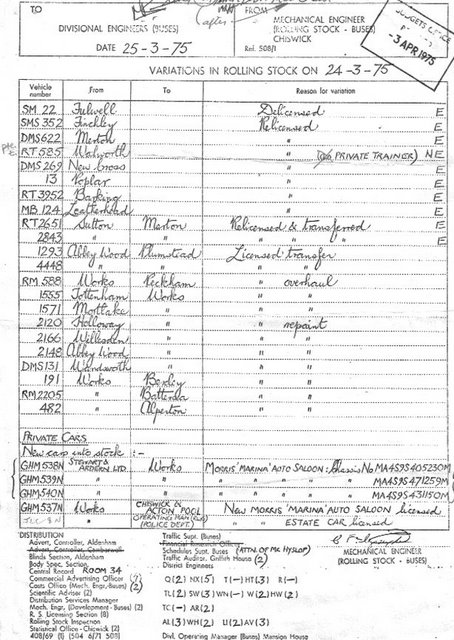 TO
FROM
DIVISIONAL ENGINEERS (BUSES)
MECHANICAL ENGINEER
(ROLLING STOCK - BUSES)
CHISWICK
DATE 25-3-75
Ref. 508/1
-3 APR 1975
VARIATIONS IN ROLLING STOCK ON 24-3-75
Vehicle number From To Reason for variation
SM 22 Fulwell Delicensed E
SMS 352 Finchley Relicensed E
DMS 622 Merton " E
RT 585 Walworth " (as PRIVATE TRAINER) NE
DMS 269 New Cross " E
13 Poplar " E
RT 3952 Barking " E
MB 124 Leatherhead " E
RT 2651 Sutton Merton Relicensed & transferred E
2843 " " " " " E
1293 Abbey Wood Plumstead Licensed transfer
4448 " " " "
RM 588 Works Peckham " overhaul
1555 Tottenham Works " "
1571 Mortlake " " "
2120 Holloway " " repaint
2166 Willesden " " "
2148 Abbey Wood " " "
DMS 131 Wandsworth " " "
191 Works Bexley " "
RM 2205 " Battersea " "
482 " Alperton " "
PRIVATE CARS
New cars into stock :-
GHM 538N STEWART & ARDERN LTD. Works MORRIS 'MARINA' AUTO SALOON : Chassis No MA4S9S405230M
GHM 539N " " " " " " MA4S9S471259M
GHM 540N " " " " " " MA4S9S431150M
GHM 537N Works CHISWICK & ACTON POOL New MORRIS 'MARINA' AUTO SALOON licensed
OPERATING MAN (RLY)
(POLICE DEPT.) " ESTATE CAR licensed
DISTRIBUTION
Advert. Controller, Aldenham
Advert. Controller, Camberwell
Blinds Section, Aldenham
Body Spec. Section
Central Record ROOM 34
Commercial Advertising Officer
Costs Office (Mech. Engr.-Buses) (2)
Scientific Adviser (2)
Distribution Services Manager
Mech. Engr. (Development - Buses) (2)
R. S. Licensing Section (8)
Rolling Stock Inspection
Statistical Office - Chiswick (2)
408/69 (1) (504 6/71 508)
Traffic Supt. (Buses)
Financial Research Office
Schedules Supt. Buses (ATTN. OF Mr HYSLOP)
Traffic Auditor, Griffith House (2)
District Engineers
Q(2) NX(5) T(-) HT(3) R(-)
TL(2) SW(3) WN(-) W(2) HW(2)
TC(-) AR(2)
AL(3) WH(2) U(2) AV(3)
Divl. Operating Manager (Buses) Mansion House
MECHANICAL ENGINEER
(ROLLING STOCK - BUSES)